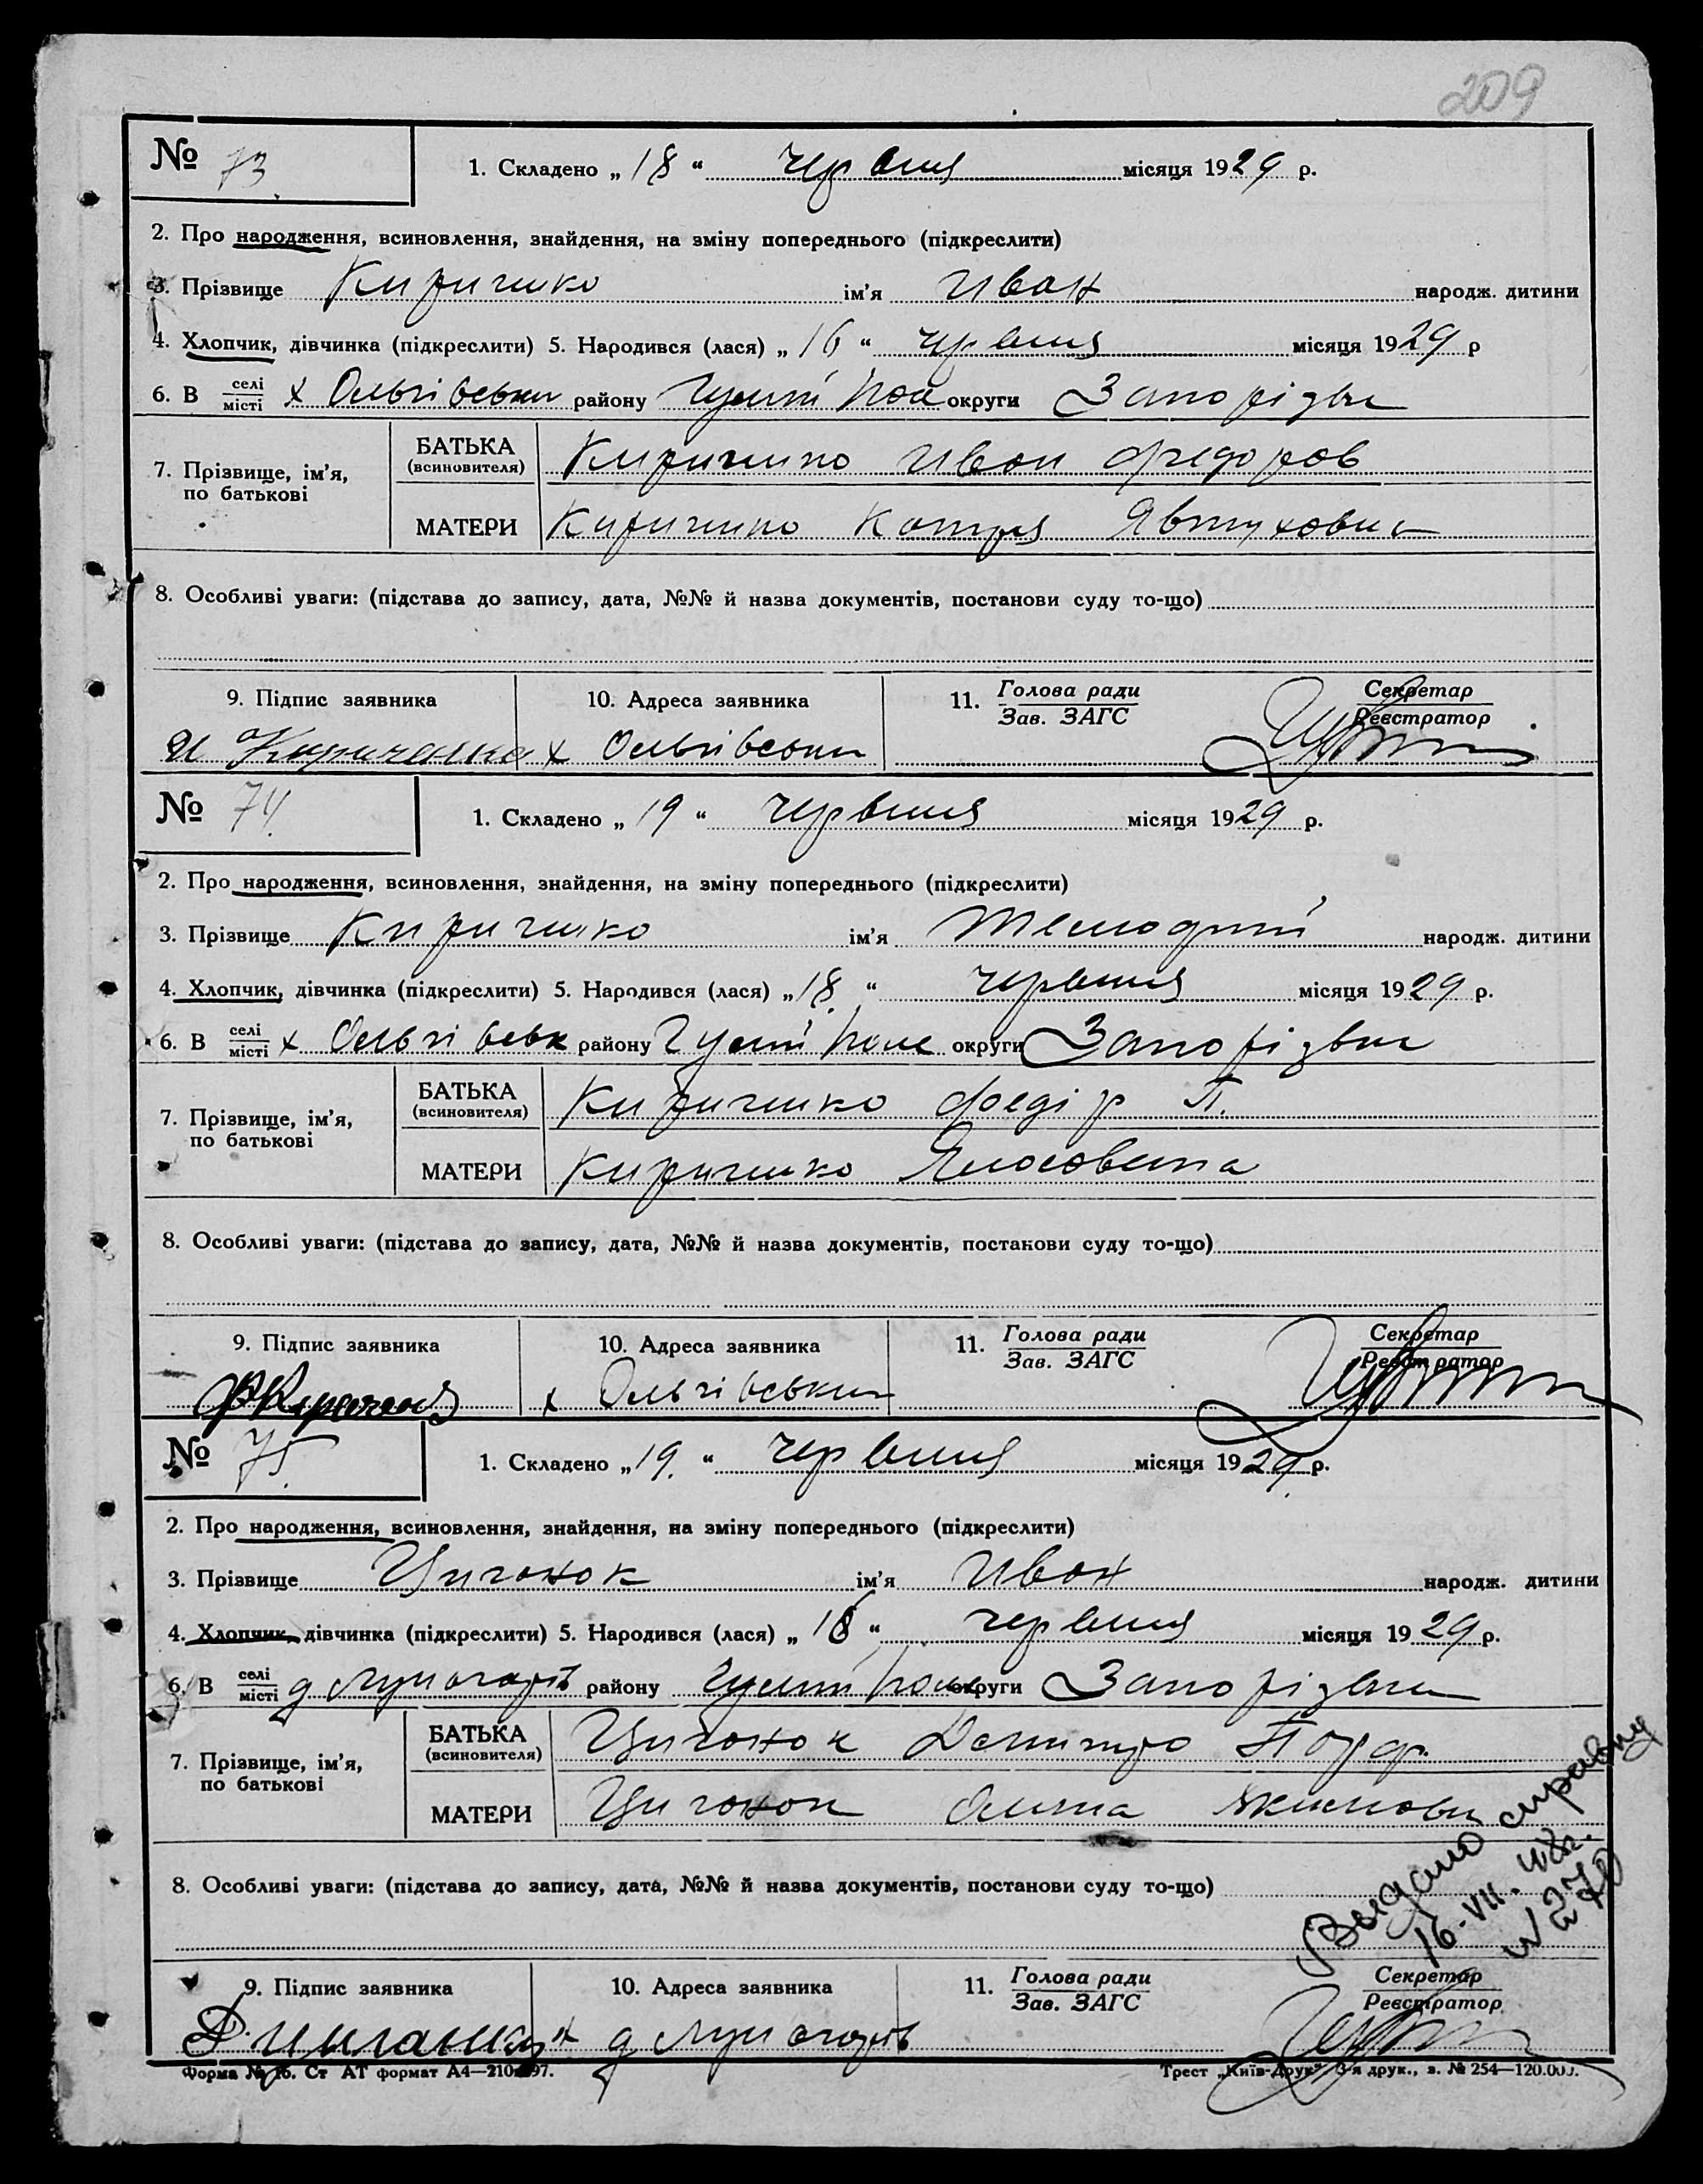 209
№ 73.
1. Складено „ 18 “ червня місяця 1929 р.
2. Про народження, всиновлення, знайдення, на зміну попереднього (підкреслити)
3. Прізвище Кириченко ім’я Иван народж. дитини
4. Хлопчик, дівчинка (підкреслити) 5. Народився (лася) „ 16 “ червня місяця 1929 р
6. В селі/місті х Ольгівськи району Гуляй Поле округи Запорізька
7. Прізвище, ім’я, по батькові
БАТЬКА (всиновителя) Кириченко Иван Федоров
МАТЕРИ Кириченко Катря Явтухови
8. Особливі уваги: (підстава до запису, дата, №№ й назва документів, постанови суду то-що)
9. Підпис заявника 10. Адреса заявника 11. Голова ради / Зав. ЗАГС Секретар / Реєстратор
И Кириченко х Ольгівськи
№ 74.
1. Складено „ 19 “ червня місяця 1929 р.
2. Про народження, всиновлення, знайдення, на зміну попереднього (підкреслити)
3. Прізвище Кириченко ім’я народж. дитини
4. Хлопчик, дівчинка (підкреслити) 5. Народився (лася) „ 18. “ червня місяця 1929 р.
6. В селі/місті х Ольгівськ району Гуляй Поле округи Запорізька
7. Прізвище, ім’я, по батькові
БАТЬКА (всиновителя) Кириченко Федір П.
МАТЕРИ Кириченко
8. Особливі уваги: (підстава до запису, дата, №№ й назва документів, постанови суду то-що)
9. Підпис заявника 10. Адреса заявника 11. Голова ради / Зав. ЗАГС Секретар / Реєстратор
х Ольгівськи
№ 75.
1. Складено „ 19. “ червня місяця 1929. р.
2. Про народження, всиновлення, знайдення, на зміну попереднього (підкреслити)
3. Прізвище Циганок ім’я Иван народж. дитини
4. Хлопчик, дівчинка (підкреслити) 5. Народився (лася) „ 18 “ червня місяця 1929 р.
6. В селі/місті району Гуляй Поле округи Запорізька
7. Прізвище, ім’я, по батькові
БАТЬКА (всиновителя) Циганок Дмитро
МАТЕРИ Циганок Якимови
8. Особливі уваги: (підстава до запису, дата, №№ й назва документів, постанови суду то-що)
Видано справку
16-VII.
№ 270
9. Підпис заявника 10. Адреса заявника 11. Голова ради / Зав. ЗАГС Секретар / Реєстратор
Форма № 16. Ст АТ формат А4—210×297. Трест „Київ-Друк“, 3-я друк., з. № 254—120.000.